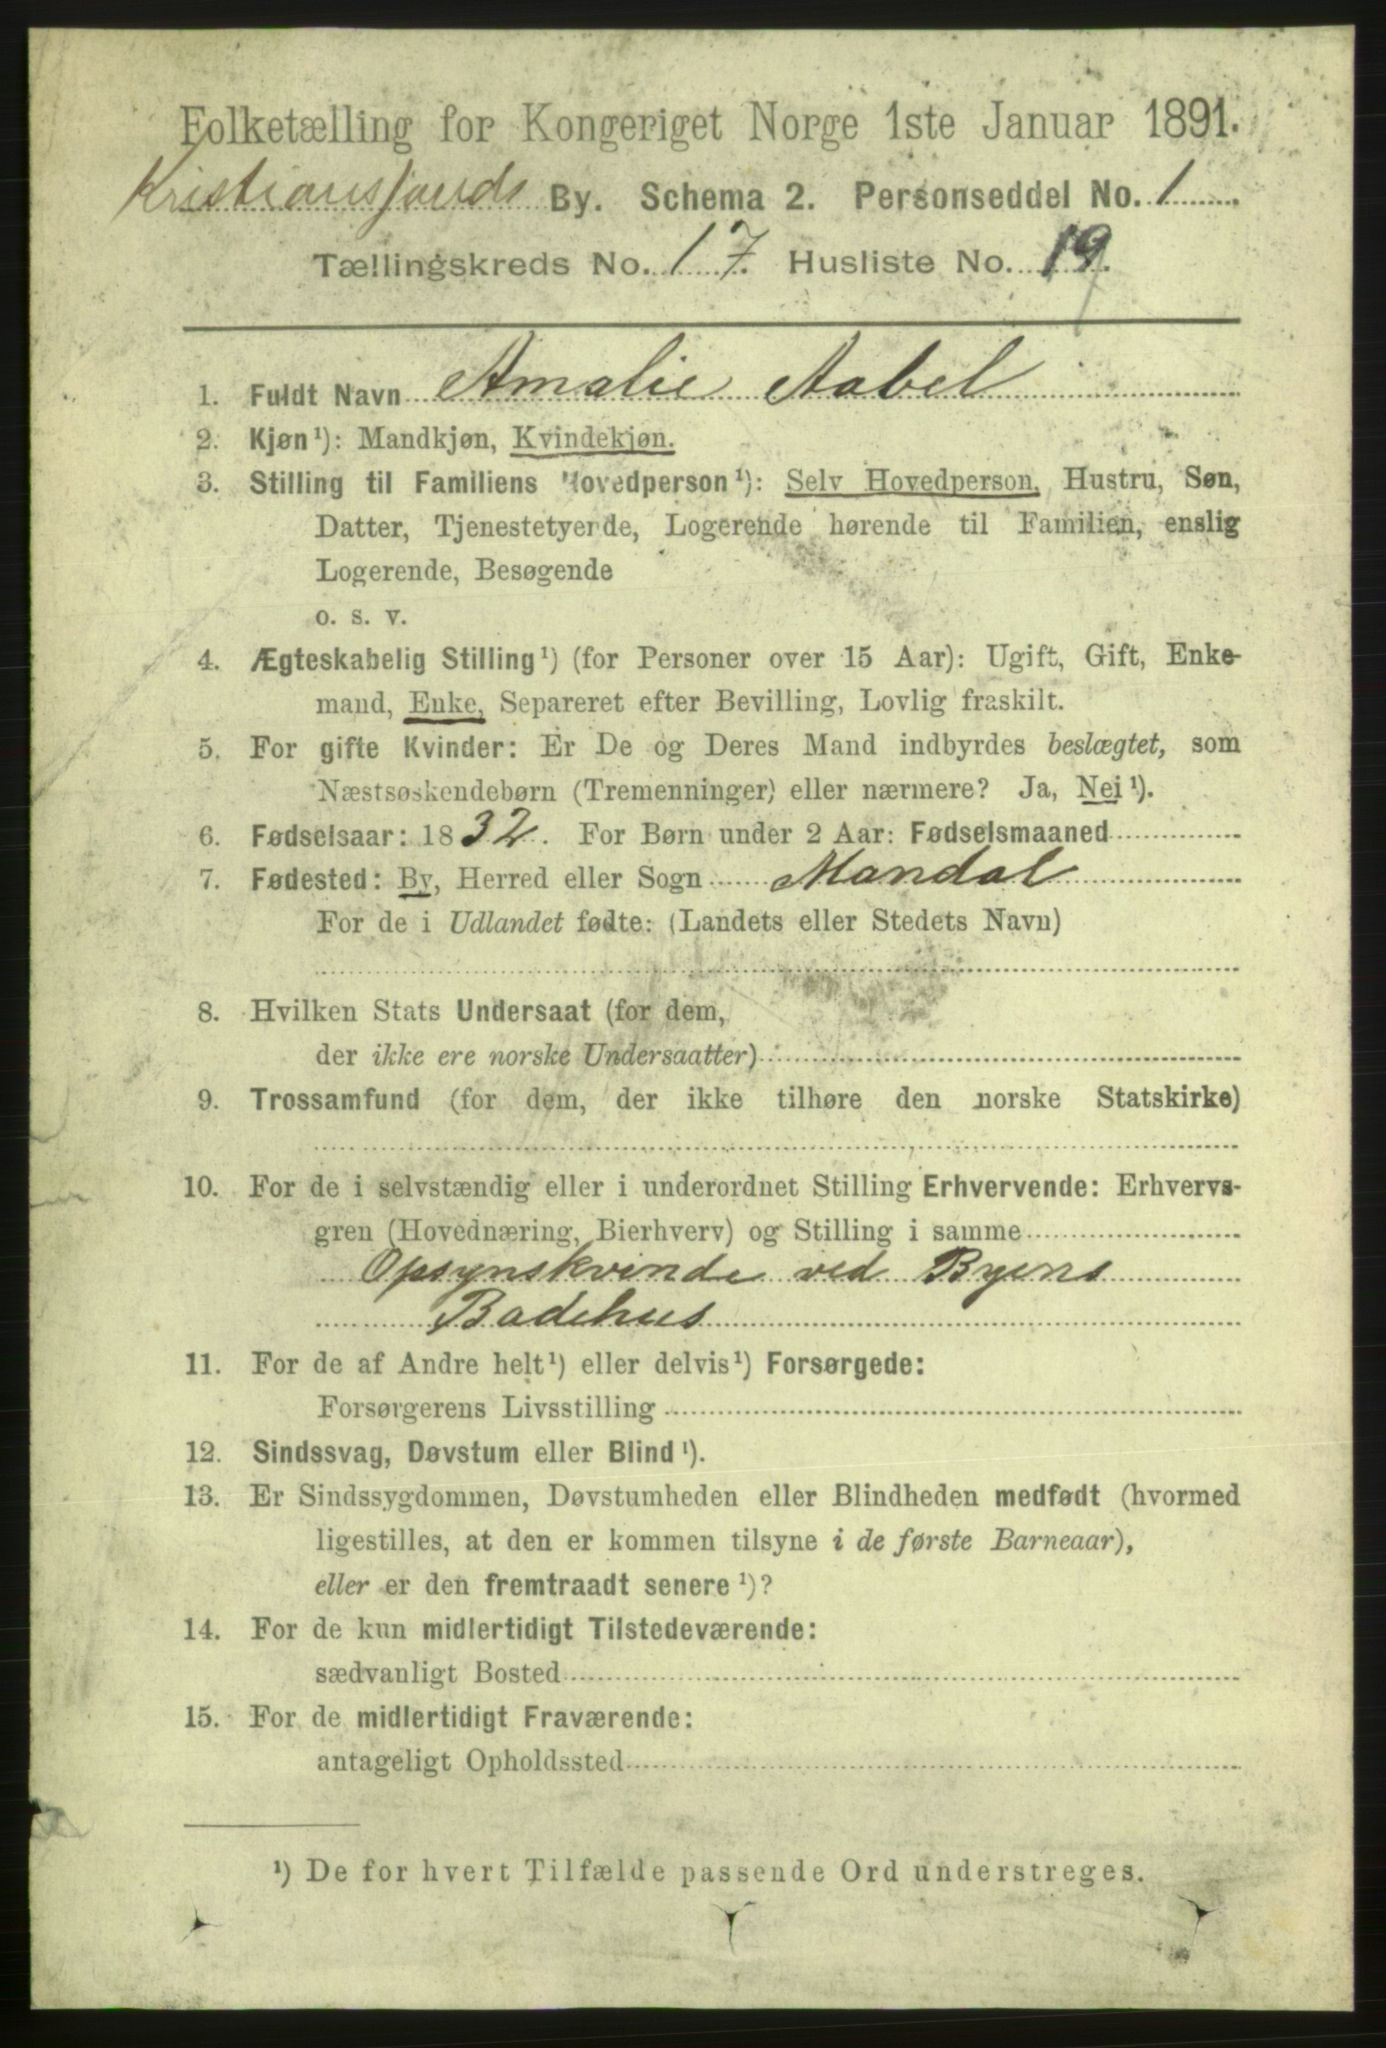 Folketælling for Kongeriget Norge 1ste Januar 1891.
Kristianssands By. Schema 2. Personseddel No. 1
Tællingskreds No. 17. Husliste No. 19.
1. Fuldt Navn Amalie Aabel
2. Kjøn¹): Mandkjøn, Kvindekjøn.
3. Stilling til Familiens Hovedperson¹): Selv Hovedperson, Hustru, Søn,
Datter, Tjenestetyende, Logerende hørende til Familien, enslig
Logerende, Besøgende
o. s. v.
4. Ægteskabelig Stilling¹) (for Personer over 15 Aar): Ugift, Gift, Enke-
mand, Enke, Separeret efter Bevilling, Lovlig fraskilt.
5. For gifte Kvinder: Er De og Deres Mand indbyrdes beslægtet, som
Næstsøskendebørn (Tremenninger) eller nærmere? Ja, Nei¹).
6. Fødselsaar: 1832. For Børn under 2 Aar: Fødselsmaaned
7. Fødested: By, Herred eller Sogn Mandal
For de i Udlandet fødte: (Landets eller Stedets Navn)
8. Hvilken Stats Undersaat (for dem,
der ikke ere norske Undersaatter)
9. Trossamfund (for dem, der ikke tilhøre den norske Statskirke)
10. For de i selvstændig eller i underordnet Stilling Erhvervende: Erhvervs-
gren (Hovednæring, Bierhverv) og Stilling i samme
Opsynskvinde ved Byens
Badehus
11. For de af Andre helt¹) eller delvis¹) Forsørgede:
Forsørgerens Livsstilling
12. Sindssvag, Døvstum eller Blind¹).
13. Er Sindssygdommen, Døvstumheden eller Blindheden medfødt (hvormed
ligestilles, at den er kommen tilsyne i de første Barneaar),
eller er den fremtraadt senere¹)?
14. For de kun midlertidigt Tilstedeværende:
sædvanligt Bosted
15. For de midlertidigt Fraværende:
antageligt Opholdssted
¹) De for hvert Tilfælde passende Ord understreges.